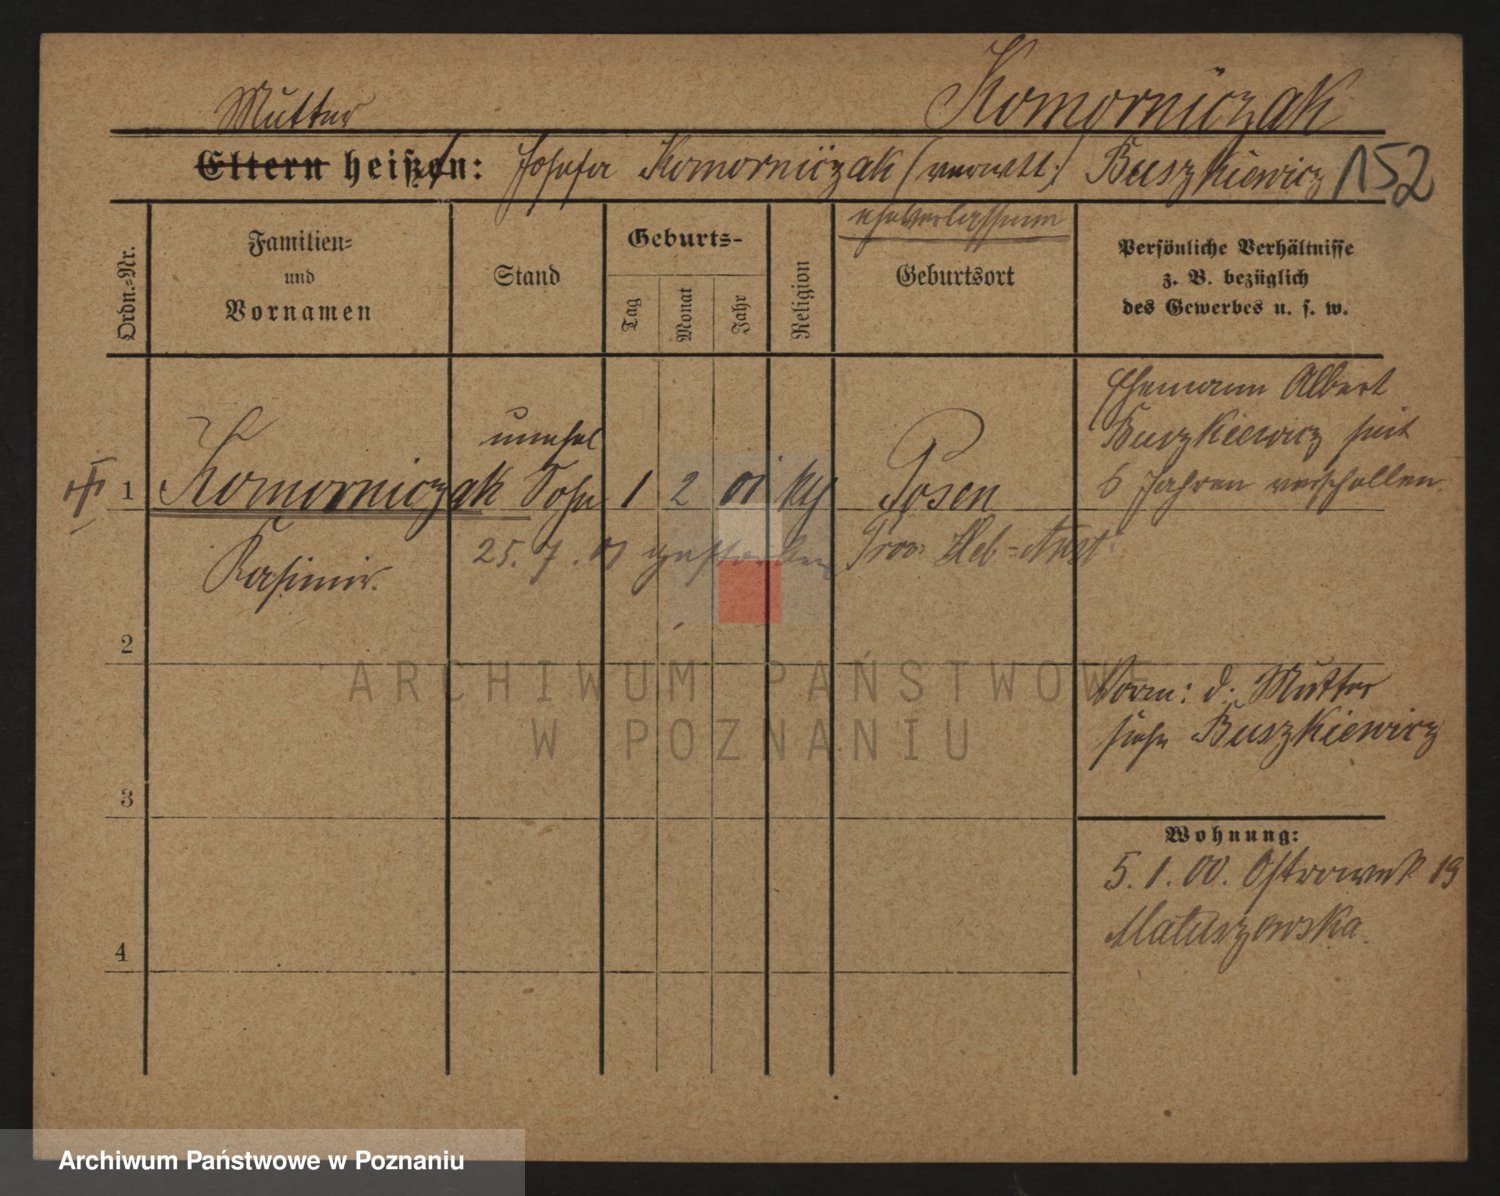 Komorniczak
Mutter
Eltern heißen: Josefa Komorniczak (verwitt:) Buszkiewicz 152
eheverlassene
Ordn.-Nr.
Familien-
und
Vornamen
Stand
Geburts-
Tag
Monat
Jahr
Religion
Geburtsort
Persönliche Verhältnisse
z. B. bezüglich
des Gewerbes u. s. w.
Ehemann Albert
Buszkiewicz seit
6 Jahren verschollen.
unehel
1 Komorniczak Sohn 1 2 01 Posen
Kasimir.
25. 7. 01 gestorben Prov: Heb-Anst:
2
Vorm: d. Mutter
siehe Buszkiewicz
3
Wohnung:
5. 1. 00. Ostrowek 19
Matuszewska.
4
ARCHIWUM PAŃSTWOWE
W POZNANIU
Archiwum Państwowe w Poznaniu